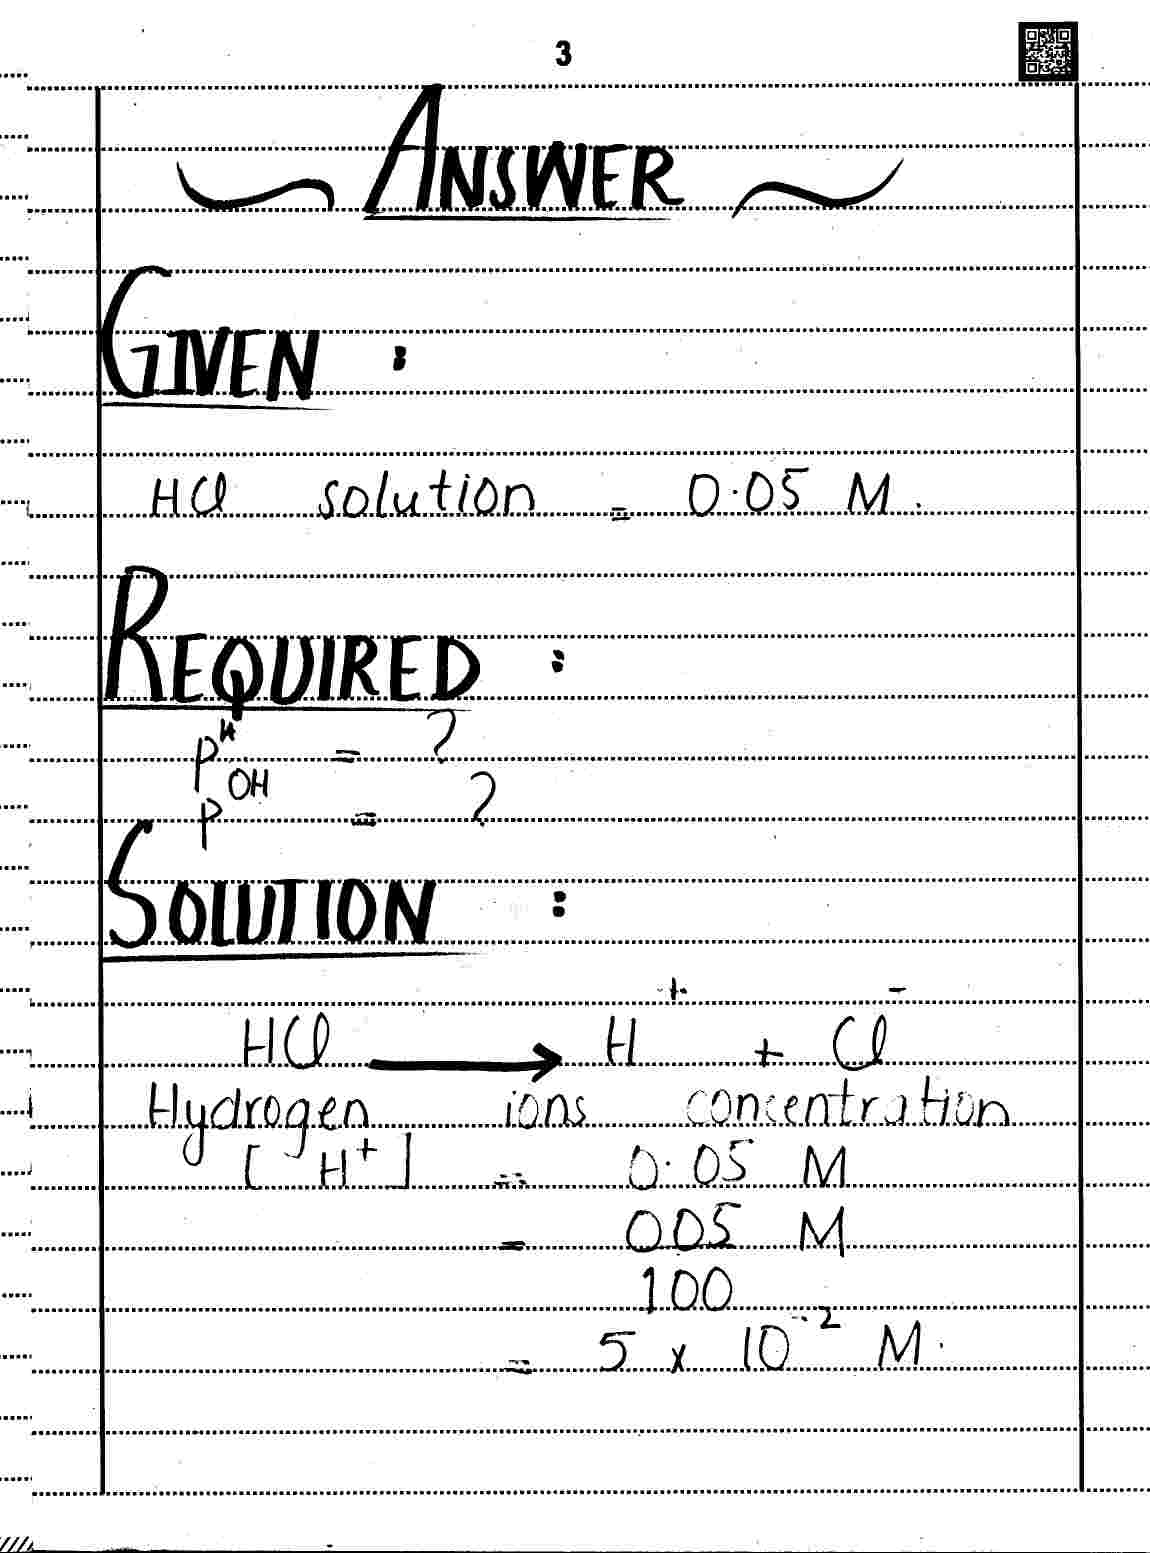 3
ANSWER
GIVEN :
HCl solution = 0.05 M.
REQUIRED :
P^H = ?
P^OH = ?
SOLUTION :
HCl ⟶ H⁺ + Cl⁻
Hydrogen ions concentration
[ H⁺ ] = 0.05 M
= 005 M
100
= 5 x 10⁻² M.